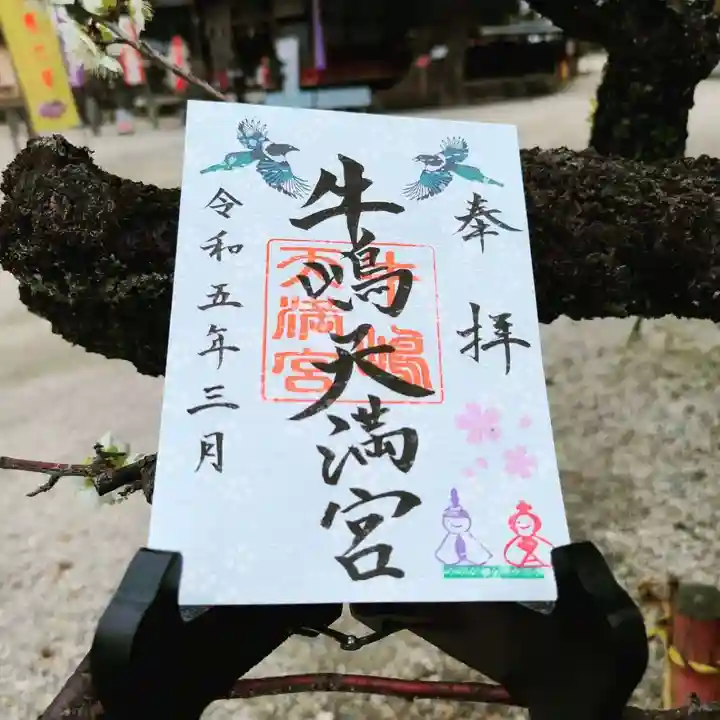 奉拝
牛嶋天満宮
牛嶋
天満宮
令和五年三月